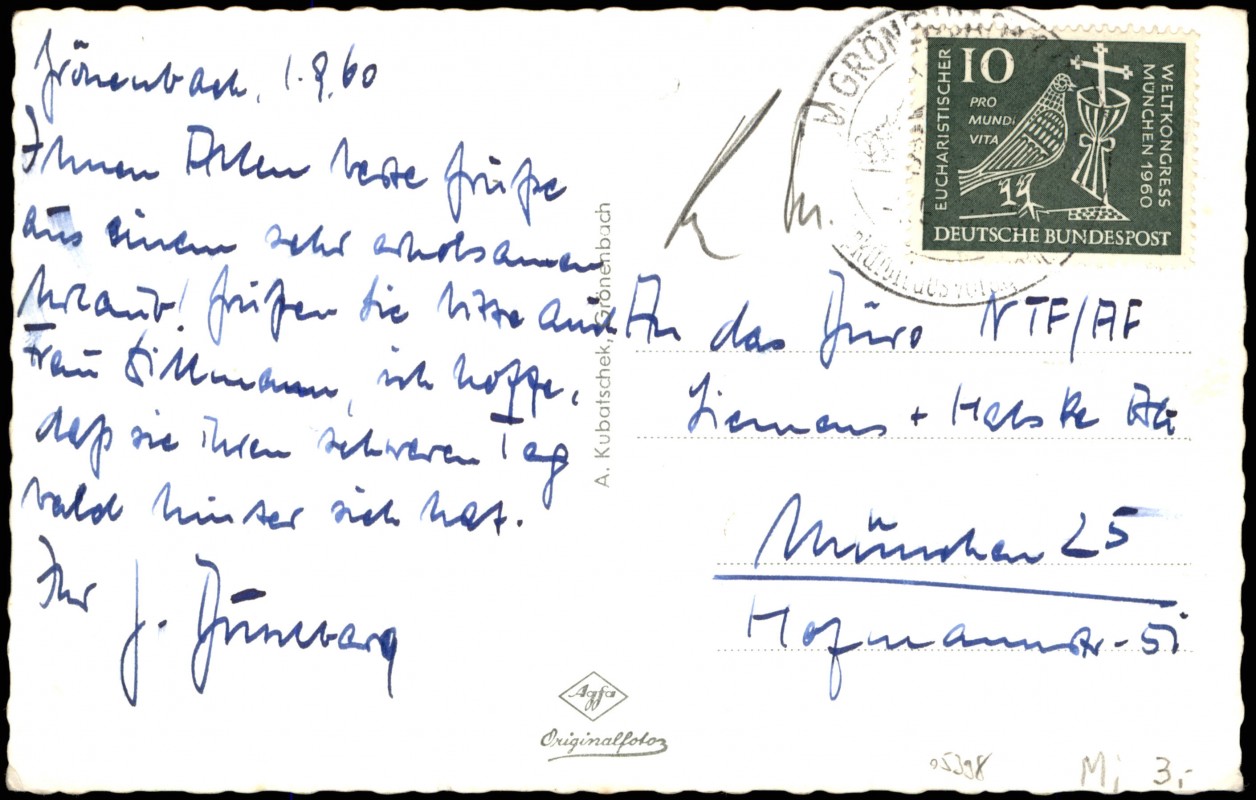 Grönenbach, 1.9.60
Ihnen Allen beste Grüße
aus einem sehr erholsamen
Urlaub! Grüßen Sie bitte auch
Frau Dittmann, ich hoffe,
daß sie ihren schweren Tag
bald hinter sich hat.
Ihr J.
A. Kubatschek, Grönenbach
GRÖNENBACH
10
PRO
MUNDI
VITA
EUCHARISTISCHER
WELTKONGRESS
MÜNCHEN 1960
DEUTSCHE BUNDESPOST
An das Büro NTF/AF
Siemens + Halske AG
München 25
Hofmannstr. 51
Agfa
Originalfoto
05398
Mi 3.-